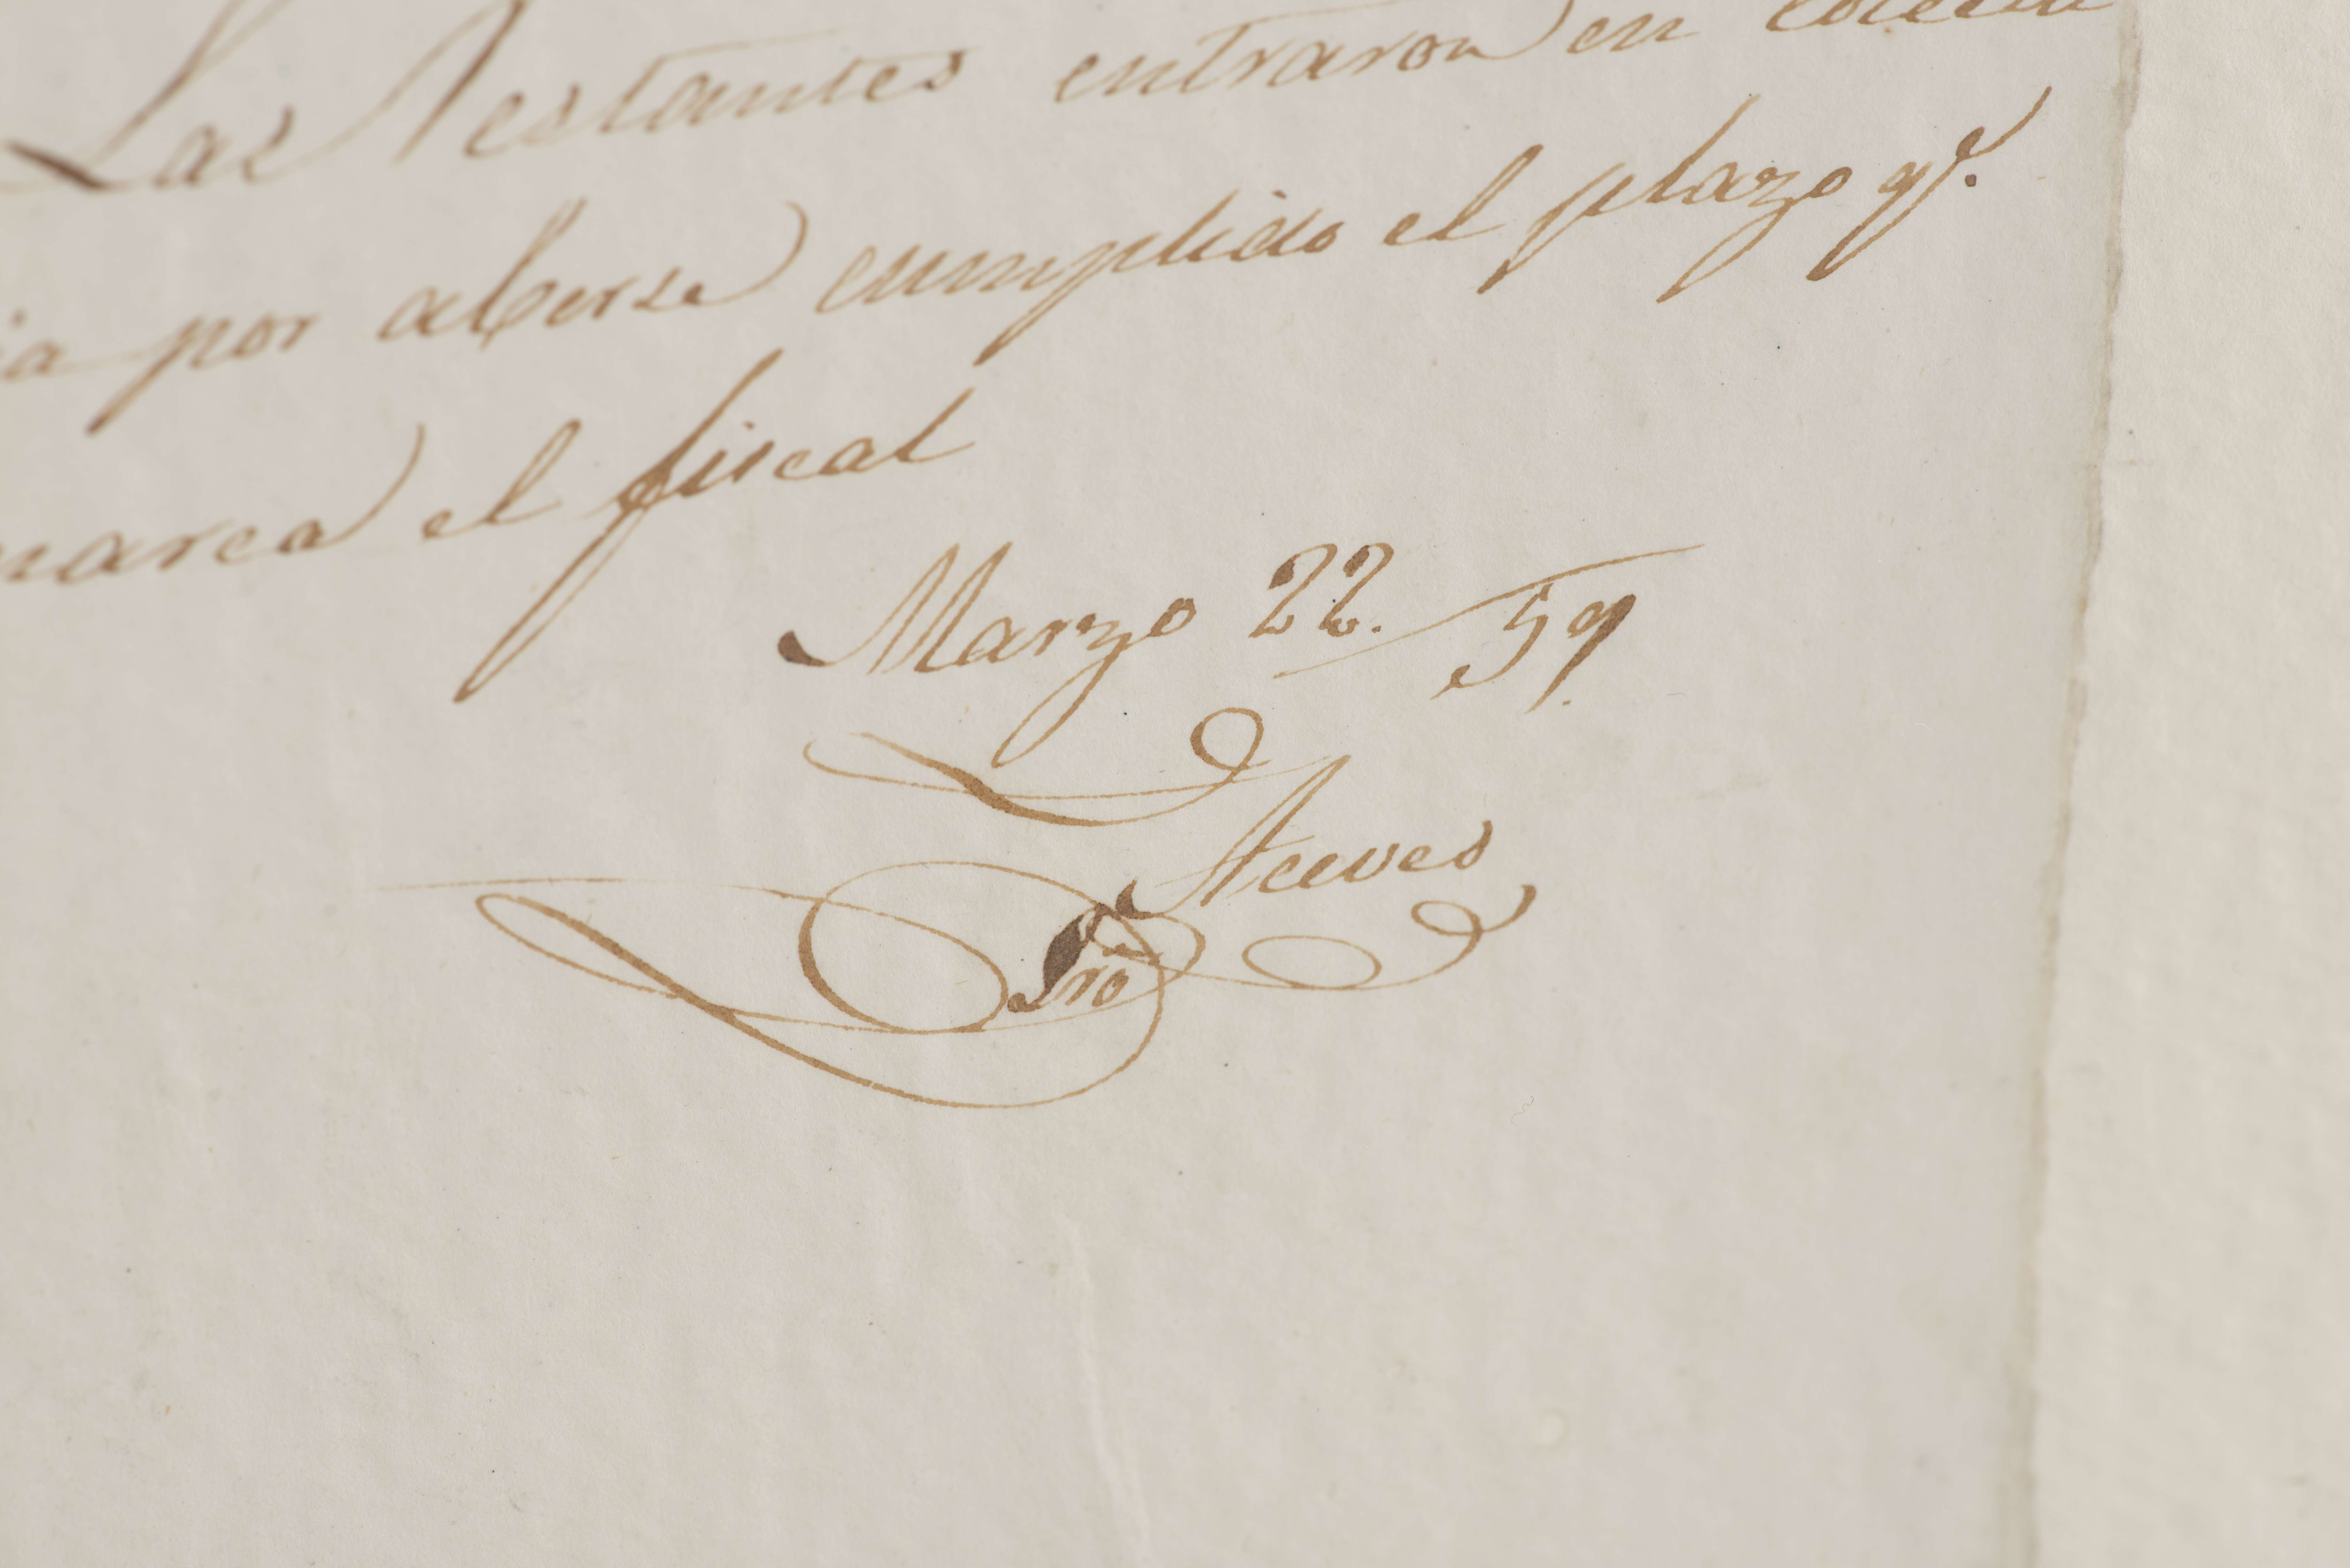 Las restantes entraron en
ia por aberse cumplido el plazo qe.
marca el fiscal
Marzo 22. 59
Aceves
Srio